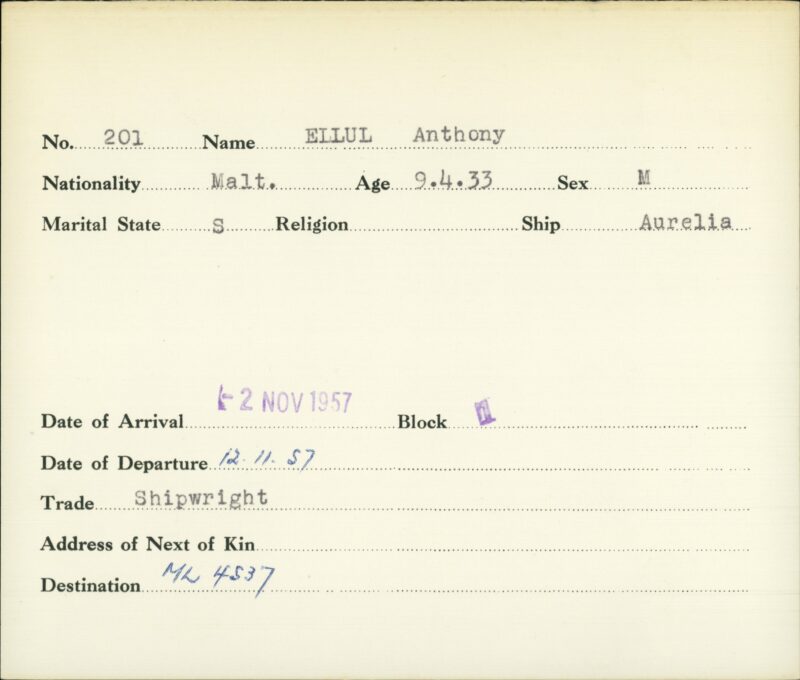 No. 201 Name ELLUL Anthony
Nationality Malt. Age 9.4.33 Sex M
Marital State S Religion Ship Aurelia
Date of Arrival - 2 NOV 1957 Block 1
Date of Departure 12.11.57
Trade Shipwright
Address of Next of Kin
Destination ML 4537